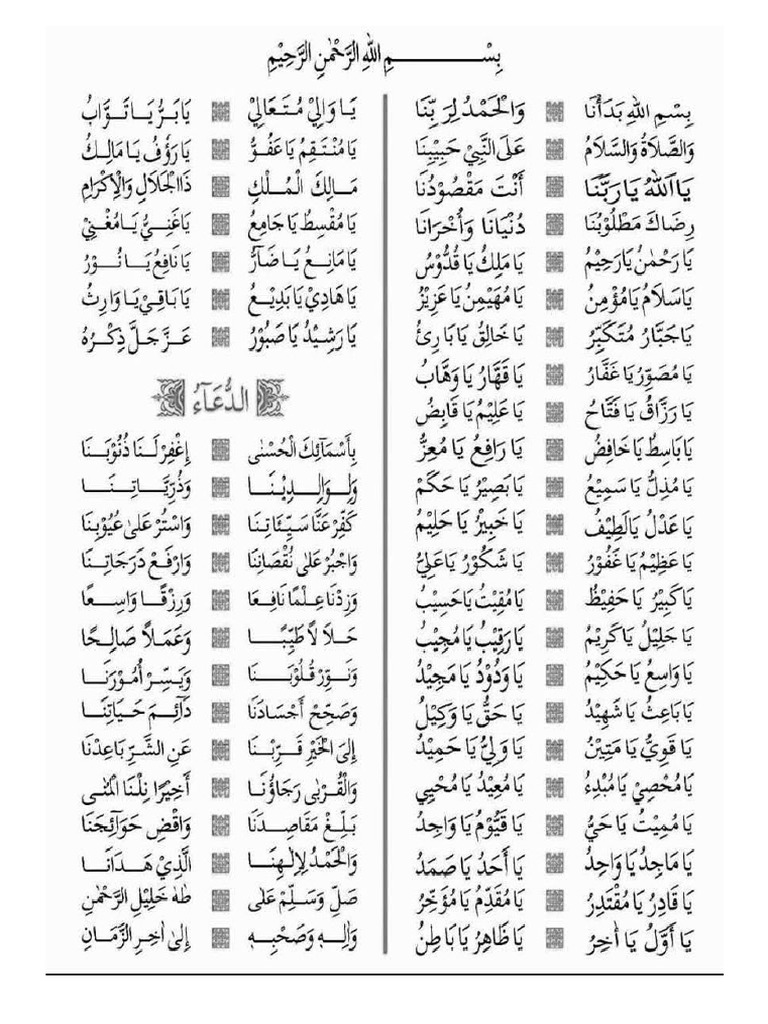 بِسْــــــمِ اللهِ الرَّحْمٰنِ الرَّحِيْمِ
بِسْمِ اللهِ بَدَأْنَا وَالْحَمْدُ لِرَبِّنَا
وَالصَّلَاةُ وَالسَّلَامُ عَلَى النَّبِيْ حَبِيْبِنَا
يَا اَللهُ يَا رَبَّنَا أَنْتَ مَقْصُوْدُنَا
رِضَاكَ مَطْلُوْبُنَا دُنْيَانَا وَأُخْرَانَا
يَا رَحْمٰنُ يَا رَحِيْمُ يَا مَلِكُ يَا قُدُّوْسُ
يَا سَلَامُ يَا مُؤْمِنُ يَا مُهَيْمِنُ يَا عَزِيْزُ
يَا جَبَّارُ مُتَكَبِّرُ يَا خَالِقُ يَا بَارِئُ
يَا مُصَوِّرُ يَا غَفَّارُ يَا قَهَّارُ يَا وَهَّابُ
يَا رَزَّاقُ يَا فَتَّاحُ يَا عَلِيْمُ يَا قَابِضُ
يَا بَاسِطُ يَا خَافِضُ يَا رَافِعُ يَا مُعِزُّ
يَا مُذِلُّ يَا سَمِيْعُ يَا بَصِيْرُ يَا حَكَمْ
يَا عَدْلُ يَا لَطِيْفُ يَا خَبِيْرُ يَا حَلِيْمُ
يَا عَظِيْمُ يَا غَفُوْرُ يَا شَكُوْرُ يَا عَلِيُّ
يَا كَبِيْرُ يَا حَفِيْظُ يَا مُقِيْتُ يَا حَسِيْبُ
يَا جَلِيْلُ يَا كَرِيْمُ يَا رَقِيْبُ يَا مُجِيْبُ
يَا وَاسِعُ يَا حَكِيْمُ يَا وَدُوْدُ يَا مَجِيْدُ
يَا بَاعِثُ يَا شَهِيْدُ يَا حَقُّ يَا وَكِيْلُ
يَا قَوِيُّ يَا مَتِيْنُ يَا وَلِيُّ يَا حَمِيْدُ
يَا مُحْصِيْ يَا مُبْدِءُ يَا مُعِيْدُ يَا مُحْيِي
يَا مُمِيْتُ يَا حَيُّ يَا قَيُّوْمُ يَا وَاجِدُ
يَا مَاجِدُ يَا وَاحِدُ يَا أَحَدُ يَا صَمَدُ
يَا قَادِرُ يَا مُقْتَدِرُ يَا مُقَدِّمُ يَا مُؤَخِّرُ
يَا أَوَّلُ يَا اٰخِرُ يَا ظَاهِرُ يَا بَاطِنُ
يَا وَالِيْ مُتَعَالِيْ يَا بَرُّ يَا تَوَّابُ
يَا مُنْتَقِمُ يَا عَفُوُّ يَا رَؤُفُ يَا مَالِكُ
مَالِكَ الْمُلْكِ ذَا الْجَلَالِ وَالْاِكْرَامِ
يَا مُقْسِطُ يَا جَامِعُ يَا غَنِيُّ يَا مُغْنِيْ
يَا مَانِعُ يَا ضَآرُّ يَا نَافِعُ يَا نُوْرُ
يَا هَادِيْ يَا بَدِيْعُ يَا بَاقِيْ يَا وَارِثُ
يَا رَشِيْدُ يَا صَبُوْرُ عَزَّ جَلَّ ذِكْرُهُ
الدُّعَآءُ
بِأَسْمَآئِكَ الْحُسْنٰى اِغْفِرْ لَنَا ذُنُوْبَنَا
وَلِوَالِدِيْنَا وَذُرِّيَّاتِنَا
كَفِّرْ عَنَّا سَيِّئَاتِنَا وَاسْتُرْ عَلٰى عُيُوْبِنَا
وَاجْبُرْ عَلٰى نُقْصَانِنَا وَارْفَعْ دَرَجَاتِنَا
وَزِدْنَا عِلْمًا نَافِعَا وَرِزْقًا وَاسِعًا
حَلَالًا طَيِّبًا وَعَمَلًا صَالِحًا
وَنَوِّرْ قُلُوْبَنَا وَيَسِّرْ أُمُوْرَنَا
وَصَحِّحْ أَجْسَادَنَا دَآئِمَ حَيَاتِنَا
إِلَى الْخَيْرِ قَرِّبْنَا عَنِ الشَّرِّ بَاعِدْنَا
وَالْقُرْبٰى رَجَاؤُنَا أَخِيْرًا نِلْنَا الْمُنٰى
بَلِّغْ مَقَاصِدَنَا وَاقْضِ حَوَآئِجَنَا
وَالْحَمْدُ لِإِلٰهِنَا الَّذِيْ هَدَانَا
صَلِّ وَسَلِّمْ عَلٰى طٰهٰ خَلِيْلِ الرَّحْمٰنِ
وَاٰلِهٖ وَصَحْبِهٖ إِلٰى اٰخِرِ الزَّمَانِ